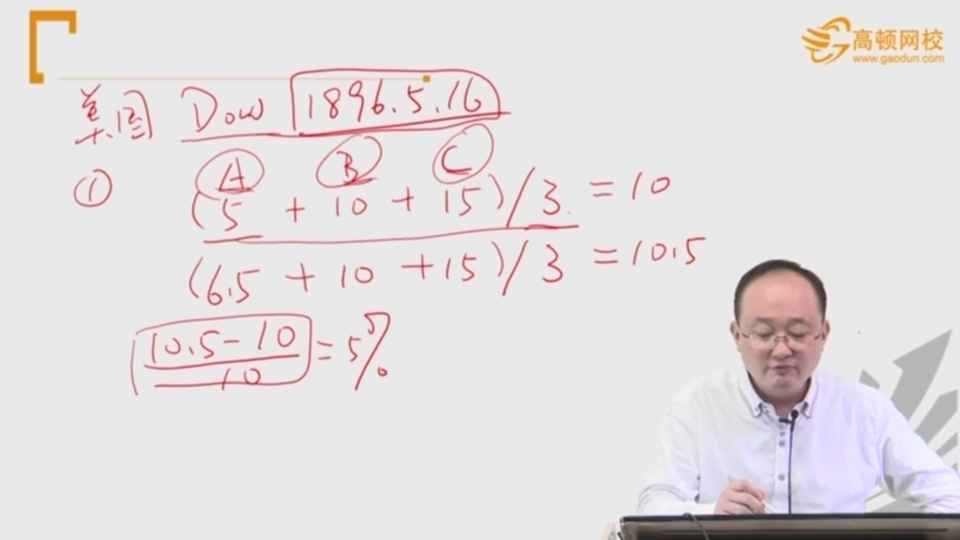 高顿网校
www.gaodun.com
美国 Dow 1896.5.16
① A B C
(5 + 10 + 15)/3 = 10
(6.5 + 10 + 15)/3 = 10.5
10.5-10
10
= 5%